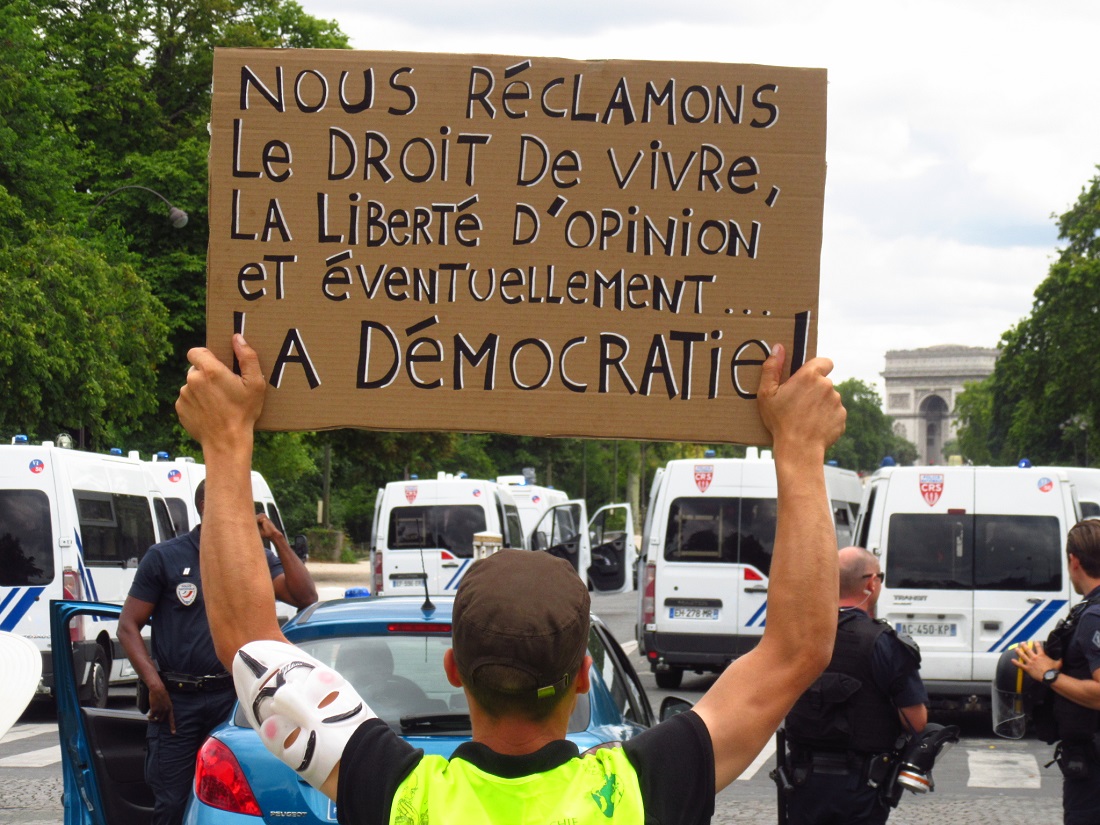 NOUS RÉCLAMONS
Le DROIT De VIVRe,
LA LIBERTÉ D'OPINION
eT ÉVENTUELLEMENT...
LA DÉMOCRATIE!
CRS
CRS
CRS
TRANSIT
EH 278 MR
AC-450-KP
PEUGEOT